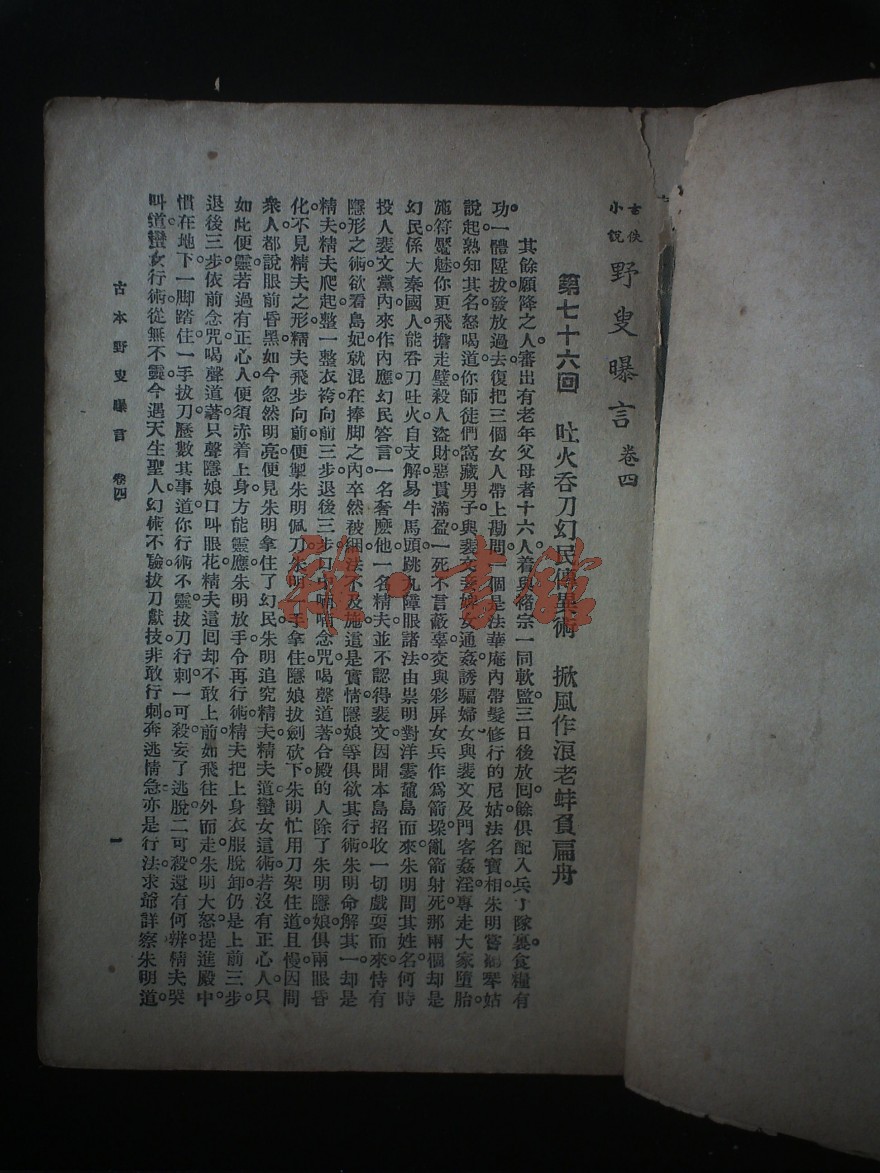 古佚小說 野叟曝言 卷四
第七十六回 吐火吞刀幻民傳異術 掀風作浪老蚌負扁舟
其餘願降之人。審出有老年父母者十六人。着與裕宗一同軟監三日後放回。餘俱配入兵丁隊裏食糧有
功。一體陞拔發放過去。復把三個女人帶上勘問。一個是法華庵內帶髮修行的尼姑法名寶相。朱明嘗聽琴姑
說起。熟知其名。怒喝道你師徒們窩藏男子。與裴文妾婢女通姦。誘騙婦女與裴文及門客姦淫。專走大家墮胎。
施符魘魅。你更飛擔走壁殺人盜財。惡貫滿盈一死不言蔽辜。交與彩屏女兵作爲箭垜亂箭射死。那兩個却是
幻民。係大秦國人。能吞刀吐火自支解易牛馬頭跳丸障眼諸法。由祟明對洋雲龍島而來。朱明問其姓名何時
投入裴文黨內來作內應。幻民答言一名奢麽他一名精夫。並不認得裴文。因聞本島招收一切戲耍而來。恃有
隱形之術。欲看島妃就混在捧脚之內。卒然被綑法不及施。這是實情。隱娘等俱欲其行術。朱明命解其一。却是
精夫。精夫爬起整一整衣袴向前三步退後三步。口中喃喃念咒喝聲道著。合殿的人除了朱明隱娘俱兩眼昏
化。不見精夫之形。精夫飛步向前便掣朱明佩刀。朱明一手拿住。隱娘拔劍砍下。朱明忙用刀架住道且慢。因問
衆人。都說眼前昏黑。如今忽然明亮。便見朱明拿住了幻民。朱明追究精夫。精夫道蠻女這術。若沒有正心人只
如此便靈。若過有正心人便須赤着上身方能靈應。朱明放手令再行術。精夫把上身衣服脫卸仍是上前三步
退後三步依前念咒喝聲道著。只聲隱娘口叫眼花。精夫這回却不敢上前如飛往外而走。朱明大怒提進殿中。
慣在地下一脚踏住一手拔刀歷數其事道。你行術不靈拔刀行刺一可殺。妄了逃脫二可殺。還有何辨。精夫哭
叫道蠻女行術從無不靈今遇天生聖人幻術不驗。拔刀獻技非敢行刺。奔逃情急亦是行法求爺詳察。朱明道。
古本野叟曝言 卷四
一
雜·書館